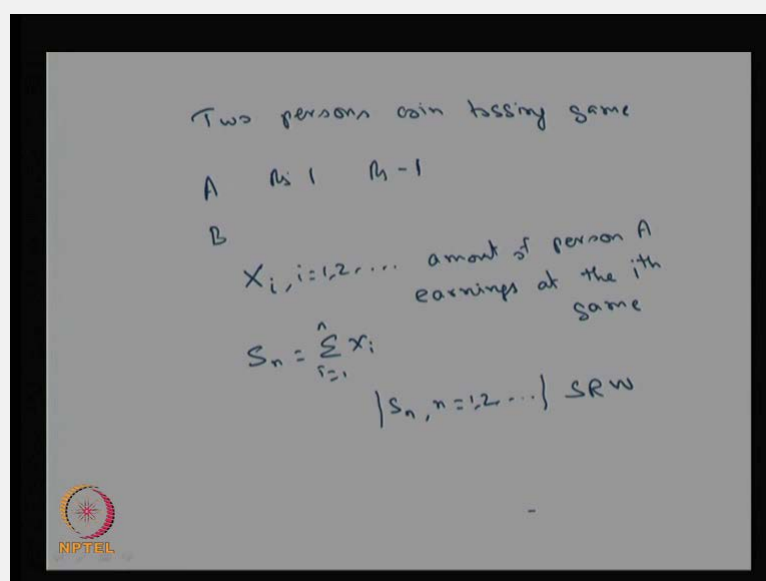 Two persons coin tossing game
A Rs 1 Rs -1
B
Xi, i=1,2,... amount of person A
earnings at the ith
game
Sn = Σ xi
n
i=1
{Sn, n=1,2,...} SRW
NPTEL